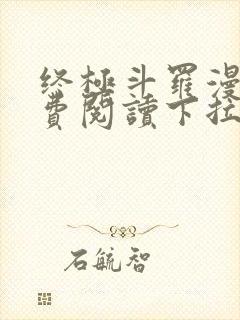 终极斗罗漫
费閱讀下拉
石毓智